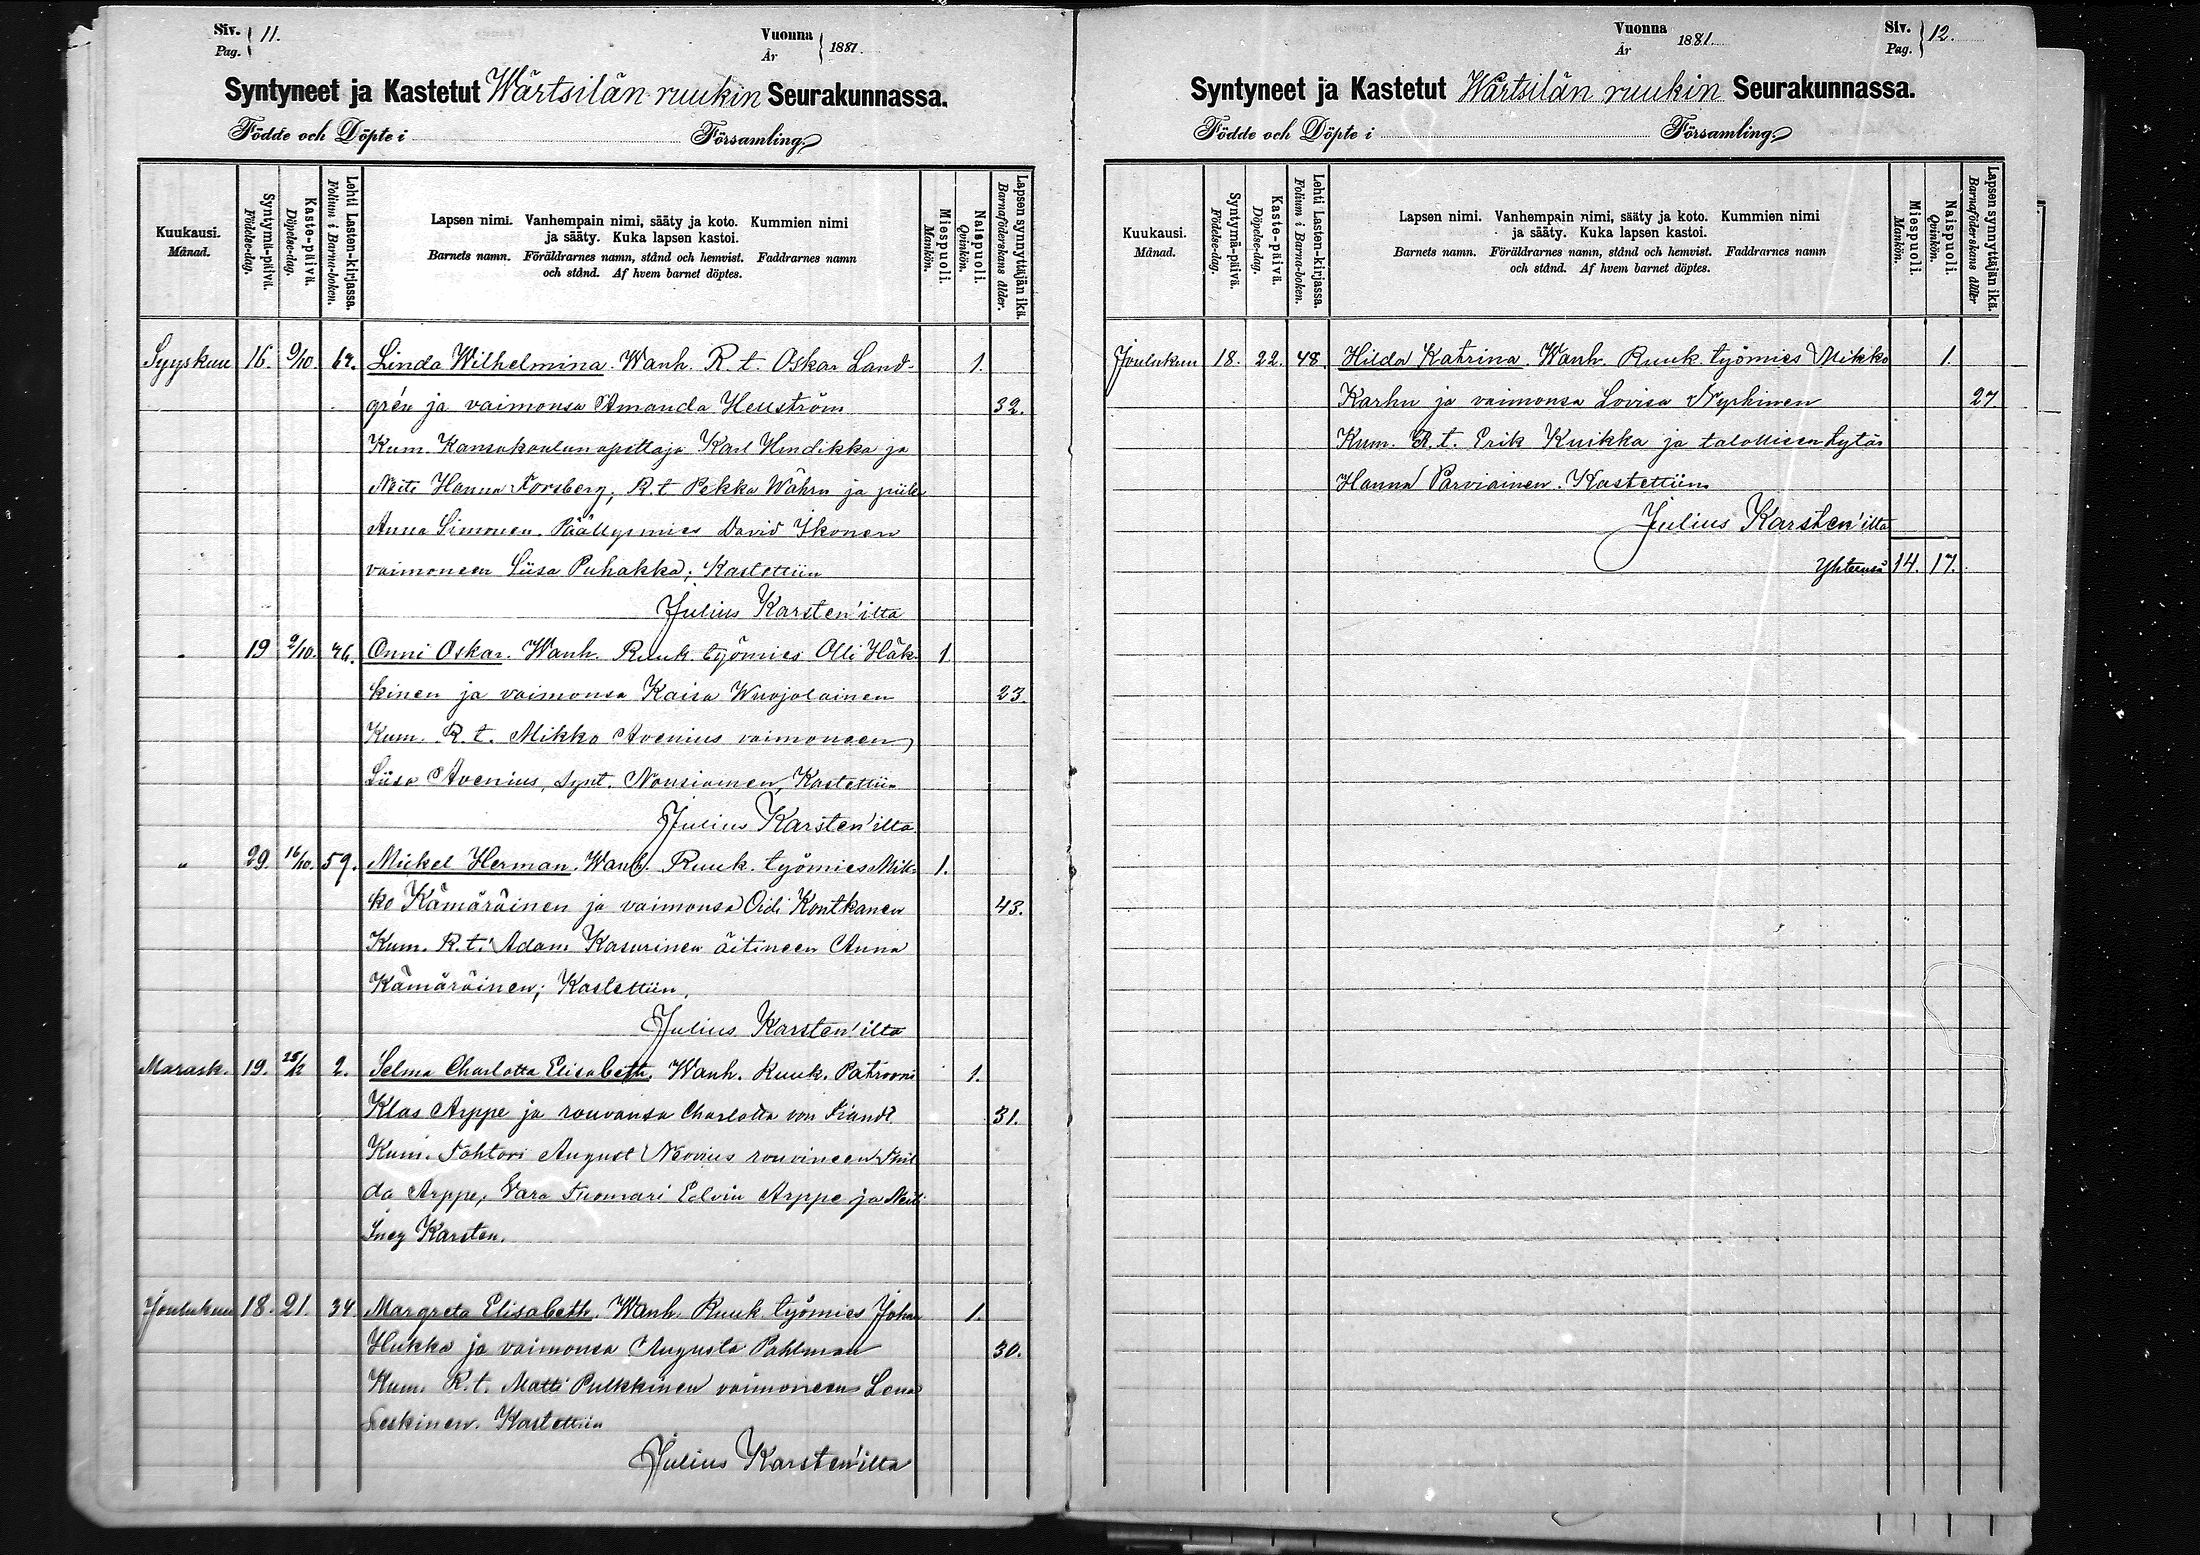 Siv. 11.
Pag.
Vuonna 1881.
År
Syntyneet ja Kastetut Wärtsilän ruukin Seurakunnassa.
Födde och Döpte i Församling.
Kuukausi.
Månad.
Syntymä-päivä.
Födelse-dag.
Kaste-päivä.
Döpelse-dag.
Lehti Lasten-kirjassa.
Folium i Barna-boken.
Lapsen nimi. Vanhempain nimi, sääty ja koto. Kummien nimi
ja sääty. Kuka lapsen kastoi.
Barnets namn. Föräldrarnes namn, stånd och hemvist. Faddrarnes namn
och stånd. Af hvem barnet döptes.
Miespuoli.
Mankön.
Naispuoli.
Qvinkön.
Lapsen synnyttäjän ikä.
Barnaföderskans ålder.
Syyskuu 16. 9/10. Linda Wilhelmina. Wanh. R. t. Oskar Land- 1.
grén ja vaimonsa Amanda Hellström 32.
Kum. Kansakoulunopettaja Karl Hindikka ja
Neiti Hanna Forsberg; R. t Pekka Wahru ja piik.
Anna Simonen. Päällysmies David Ikonen
vaimoneen Liisa Puhakka; Kastettiin
Julius Karsten'ilta
" 19 9/10. 46. Onni Oskar. Wanh. Ruuk. työmies Olli Häk- 1
kinen ja vaimonsa Kaisa Wuojolainen 23.
Kum. R. t. Mikko Avenius vaimoneen
Liisa Avenius, synt. Nousiainen, Kastettiin
Julius Karsten'ilta
" 29. 16/10. 59. Mickel Herman. Wanh. Ruuk. työmies Mik- 1.
ko Kämäräinen ja vaimonsa Oidi Kontkanen 43.
Kum. R. t. Adam Kasurinen äitineen Anna
Kämäräinen; Kastettiin,
Julius Karsten'ilta
Marask. 19. 25/12 2. Selma Charlotta Elisabeth. Wanh. Ruuk. Patrooni 1.
Klas Arppe ja rouvansa Charlotta von Fiandt 31.
Kum. Tohtori August Neovius rouvineen Thil
da Arppe, Vara Tuomari Edvin Arppe ja Neiti
Inez Karsten.
Joulukuu 18. 21. 34 Margreta Elisabeth. Wanh. Ruuk. työmies Johan 1.
Hukka ja vaimonsa Augusta Pahlman 30.
Kum. R. t. Matti Pulkkinen vaimoneen Lena
Leskinen. Kastettiin
Julius Karsten'ilta
Vuonna 1881.
År
Siv. 12.
Pag.
Syntyneet ja Kastetut Wärtsilän ruukin Seurakunnassa.
Födde och Döpte i Församling.
Kuukausi.
Månad.
Syntymä-päivä.
Födelse-dag.
Kaste-päivä.
Döpelse-dag.
Lehti Lasten-kirjassa.
Folium i Barna-boken.
Lapsen nimi. Vanhempain nimi, sääty ja koto. Kummien nimi
ja sääty. Kuka lapsen kastoi.
Barnets namn. Föräldrarnes namn, stånd och hemvist. Faddrarnes namn
och stånd. Af hvem barnet döptes.
Miespuoli.
Mankön.
Naispuoli.
Qvinkön.
Lapsen synnyttäjän ikä.
Barnaföderskans ålder
Joulukuu 18. 22. 48. Hilda Katrina. Wanh. Ruuk. työmies Mikko 1.
Karhu ja vaimonsa Lovisa Nyrhinen 27.
Kum. R. t. Erik Kuikka ja talollisen tytär
Hanna Parviainen. Kastettiin
Julius Karsten'ilta
Yhteensä 14. 17.